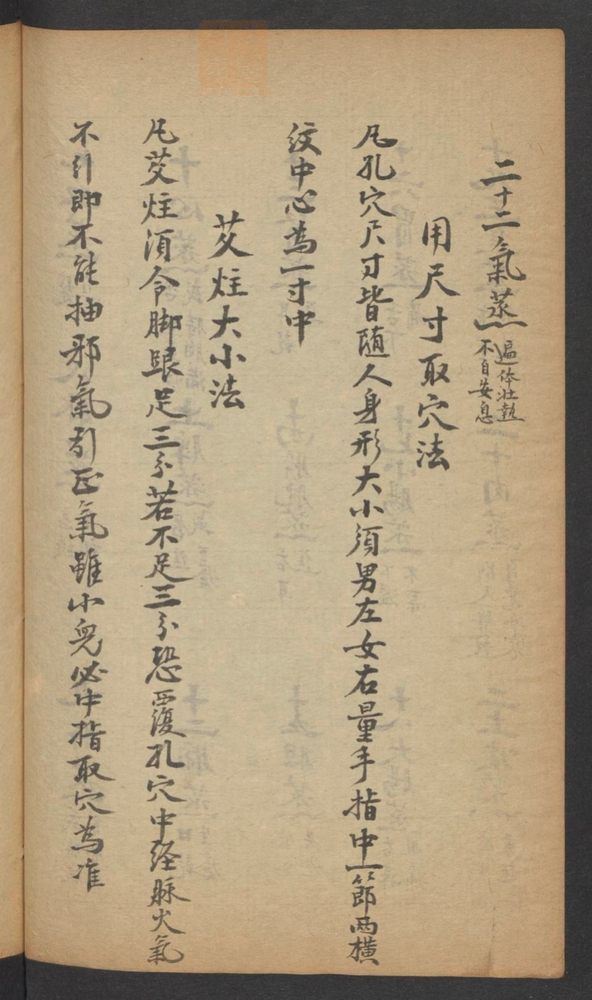 二十二氣蒸 遍体壮熱
不自安息
用尺寸取穴法
凡孔穴尺寸皆随人身形大小須男左女右量手指中一節兩橫
紋中心為一寸中
艾炷大小法
凡艾炷須令脚跟足三分若不足三分恐覆孔穴中経脉火氣
不引即不能抽邪氣引正氣雖小兒必中指取穴為准